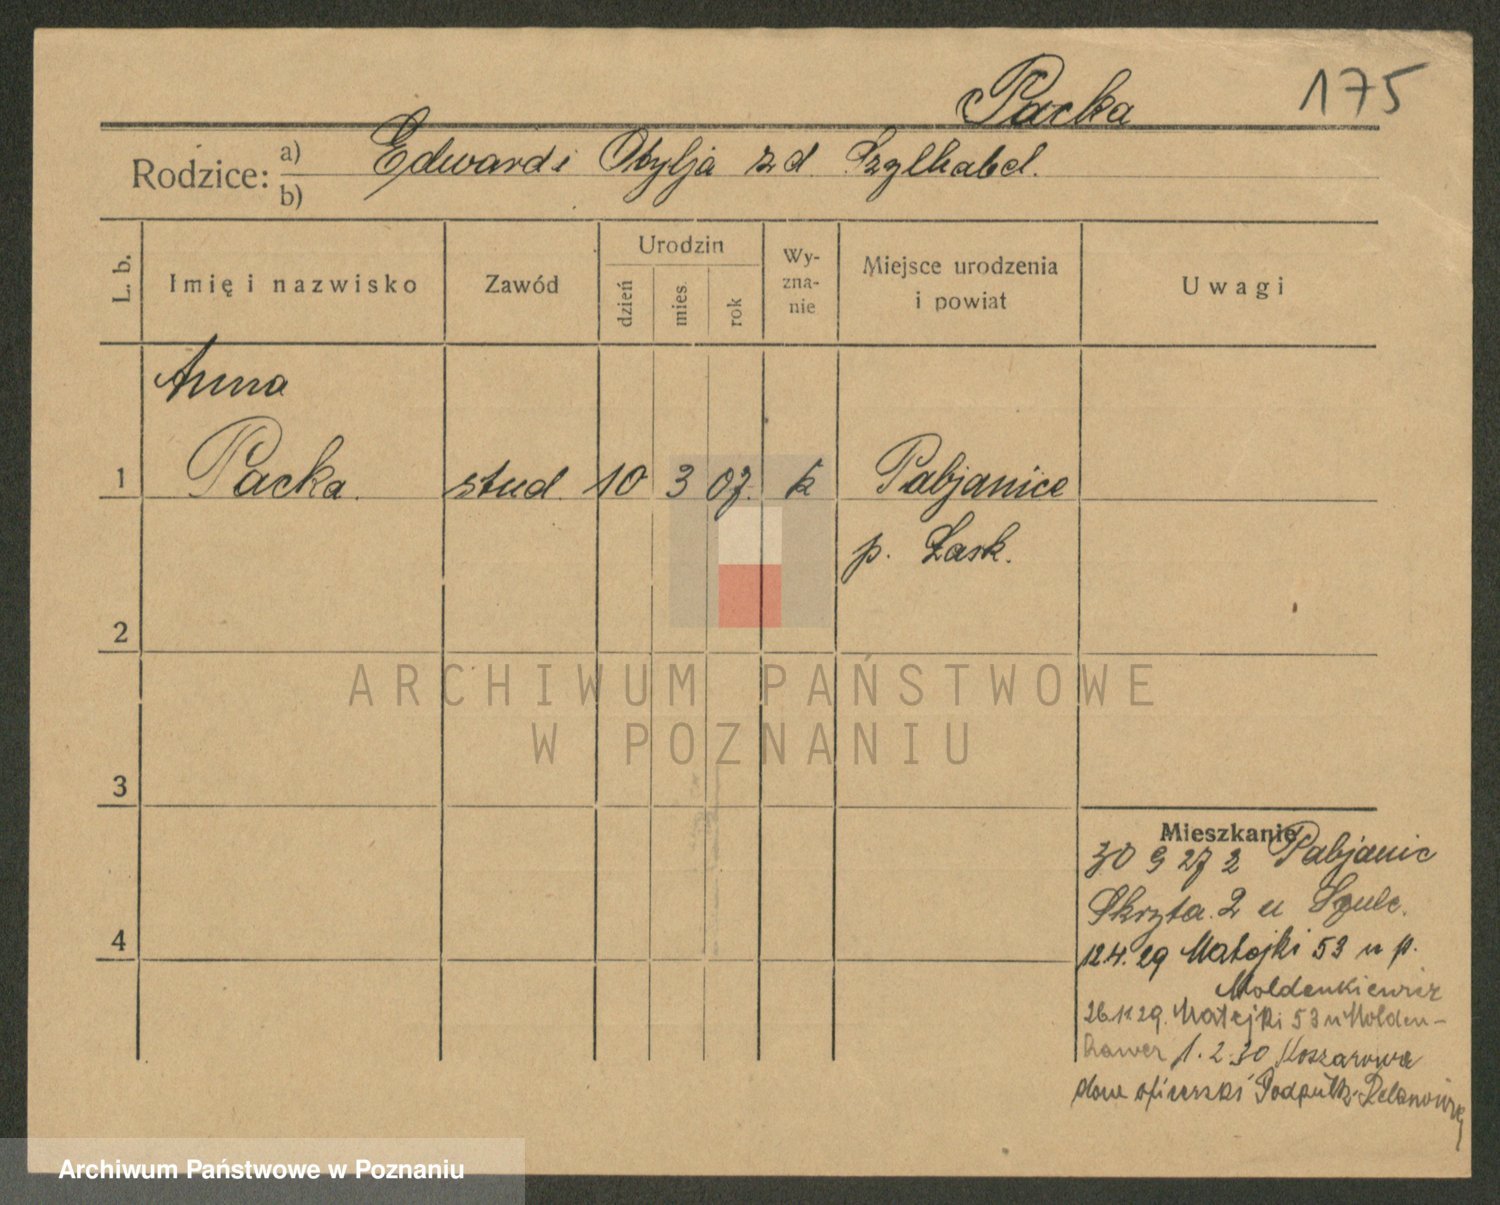 Packa 175
Rodzice: a) Edward i Otylja z d. Szylhabel.
b)
L. b. Imię i nazwisko Zawód Urodzin dzień mies. rok Wy-zna-nie Miejsce urodzenia i powiat Uwagi
Anna
1 Packa. stud. 10 3 07. k Pabjanice
p. Łask.
2
ARCHIWUM PAŃSTWOWE
W POZNANIU
3
Mieszkanie
30 9 27 z Pabjanic
4 Skryta. 2 u Szulc.
12.4.29 Matejki 53 u p.
Moldenkiewicz
26.11.29. Matejki 53 u Molden-
hawer 1.2.30 Koszarowa
dom oficerski Podpułk.
Archiwum Państwowe w Poznaniu